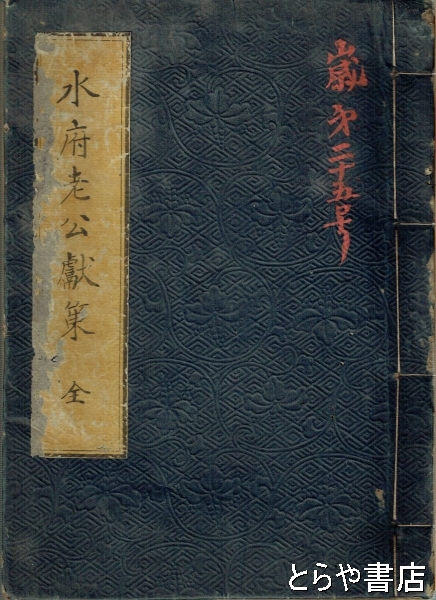 嵗第二十五号
水府老公獻策 全
とらや書店